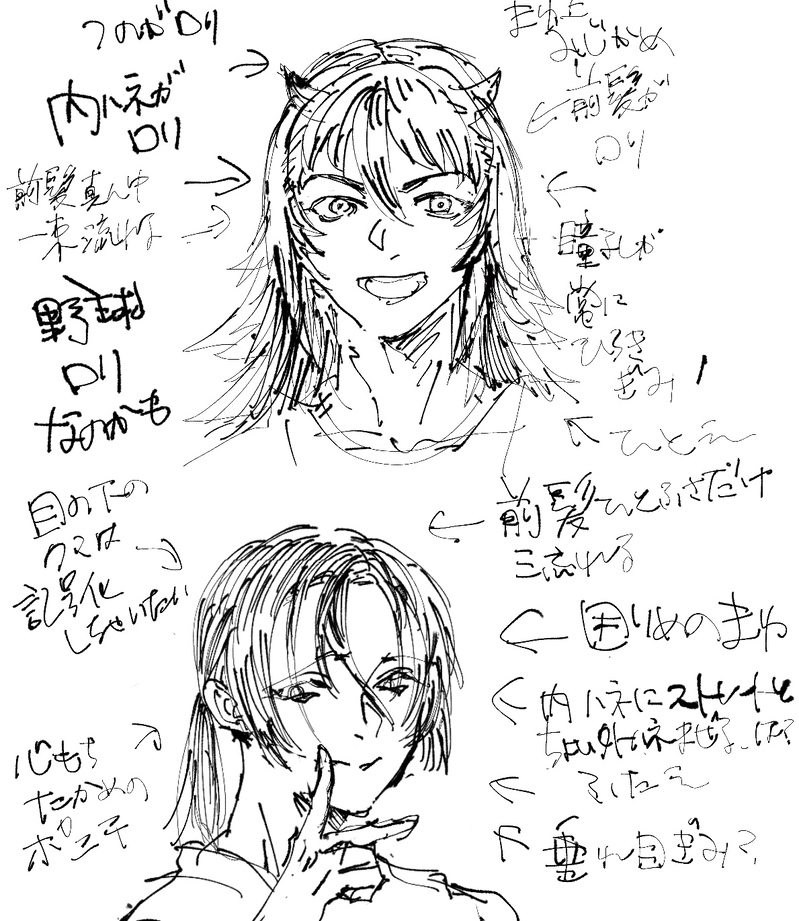 つのがロリ
内ハネが
ロリ
前髪真ん中
一束流れな
野球
ロリ
なのかも
みじかめ
前髪が
ロリ
瞳孔が
常に
ひらき
ぎみ
ひとえ
目の下の
クマは
記号化
しちゃいたい
心もち
たかめの
ポニテ
前髪ひとふさだけ
流れる
困りめのまゆ
内ハネにストレートと
ちょい外ハネまぜる
垂れ目ぎみ?